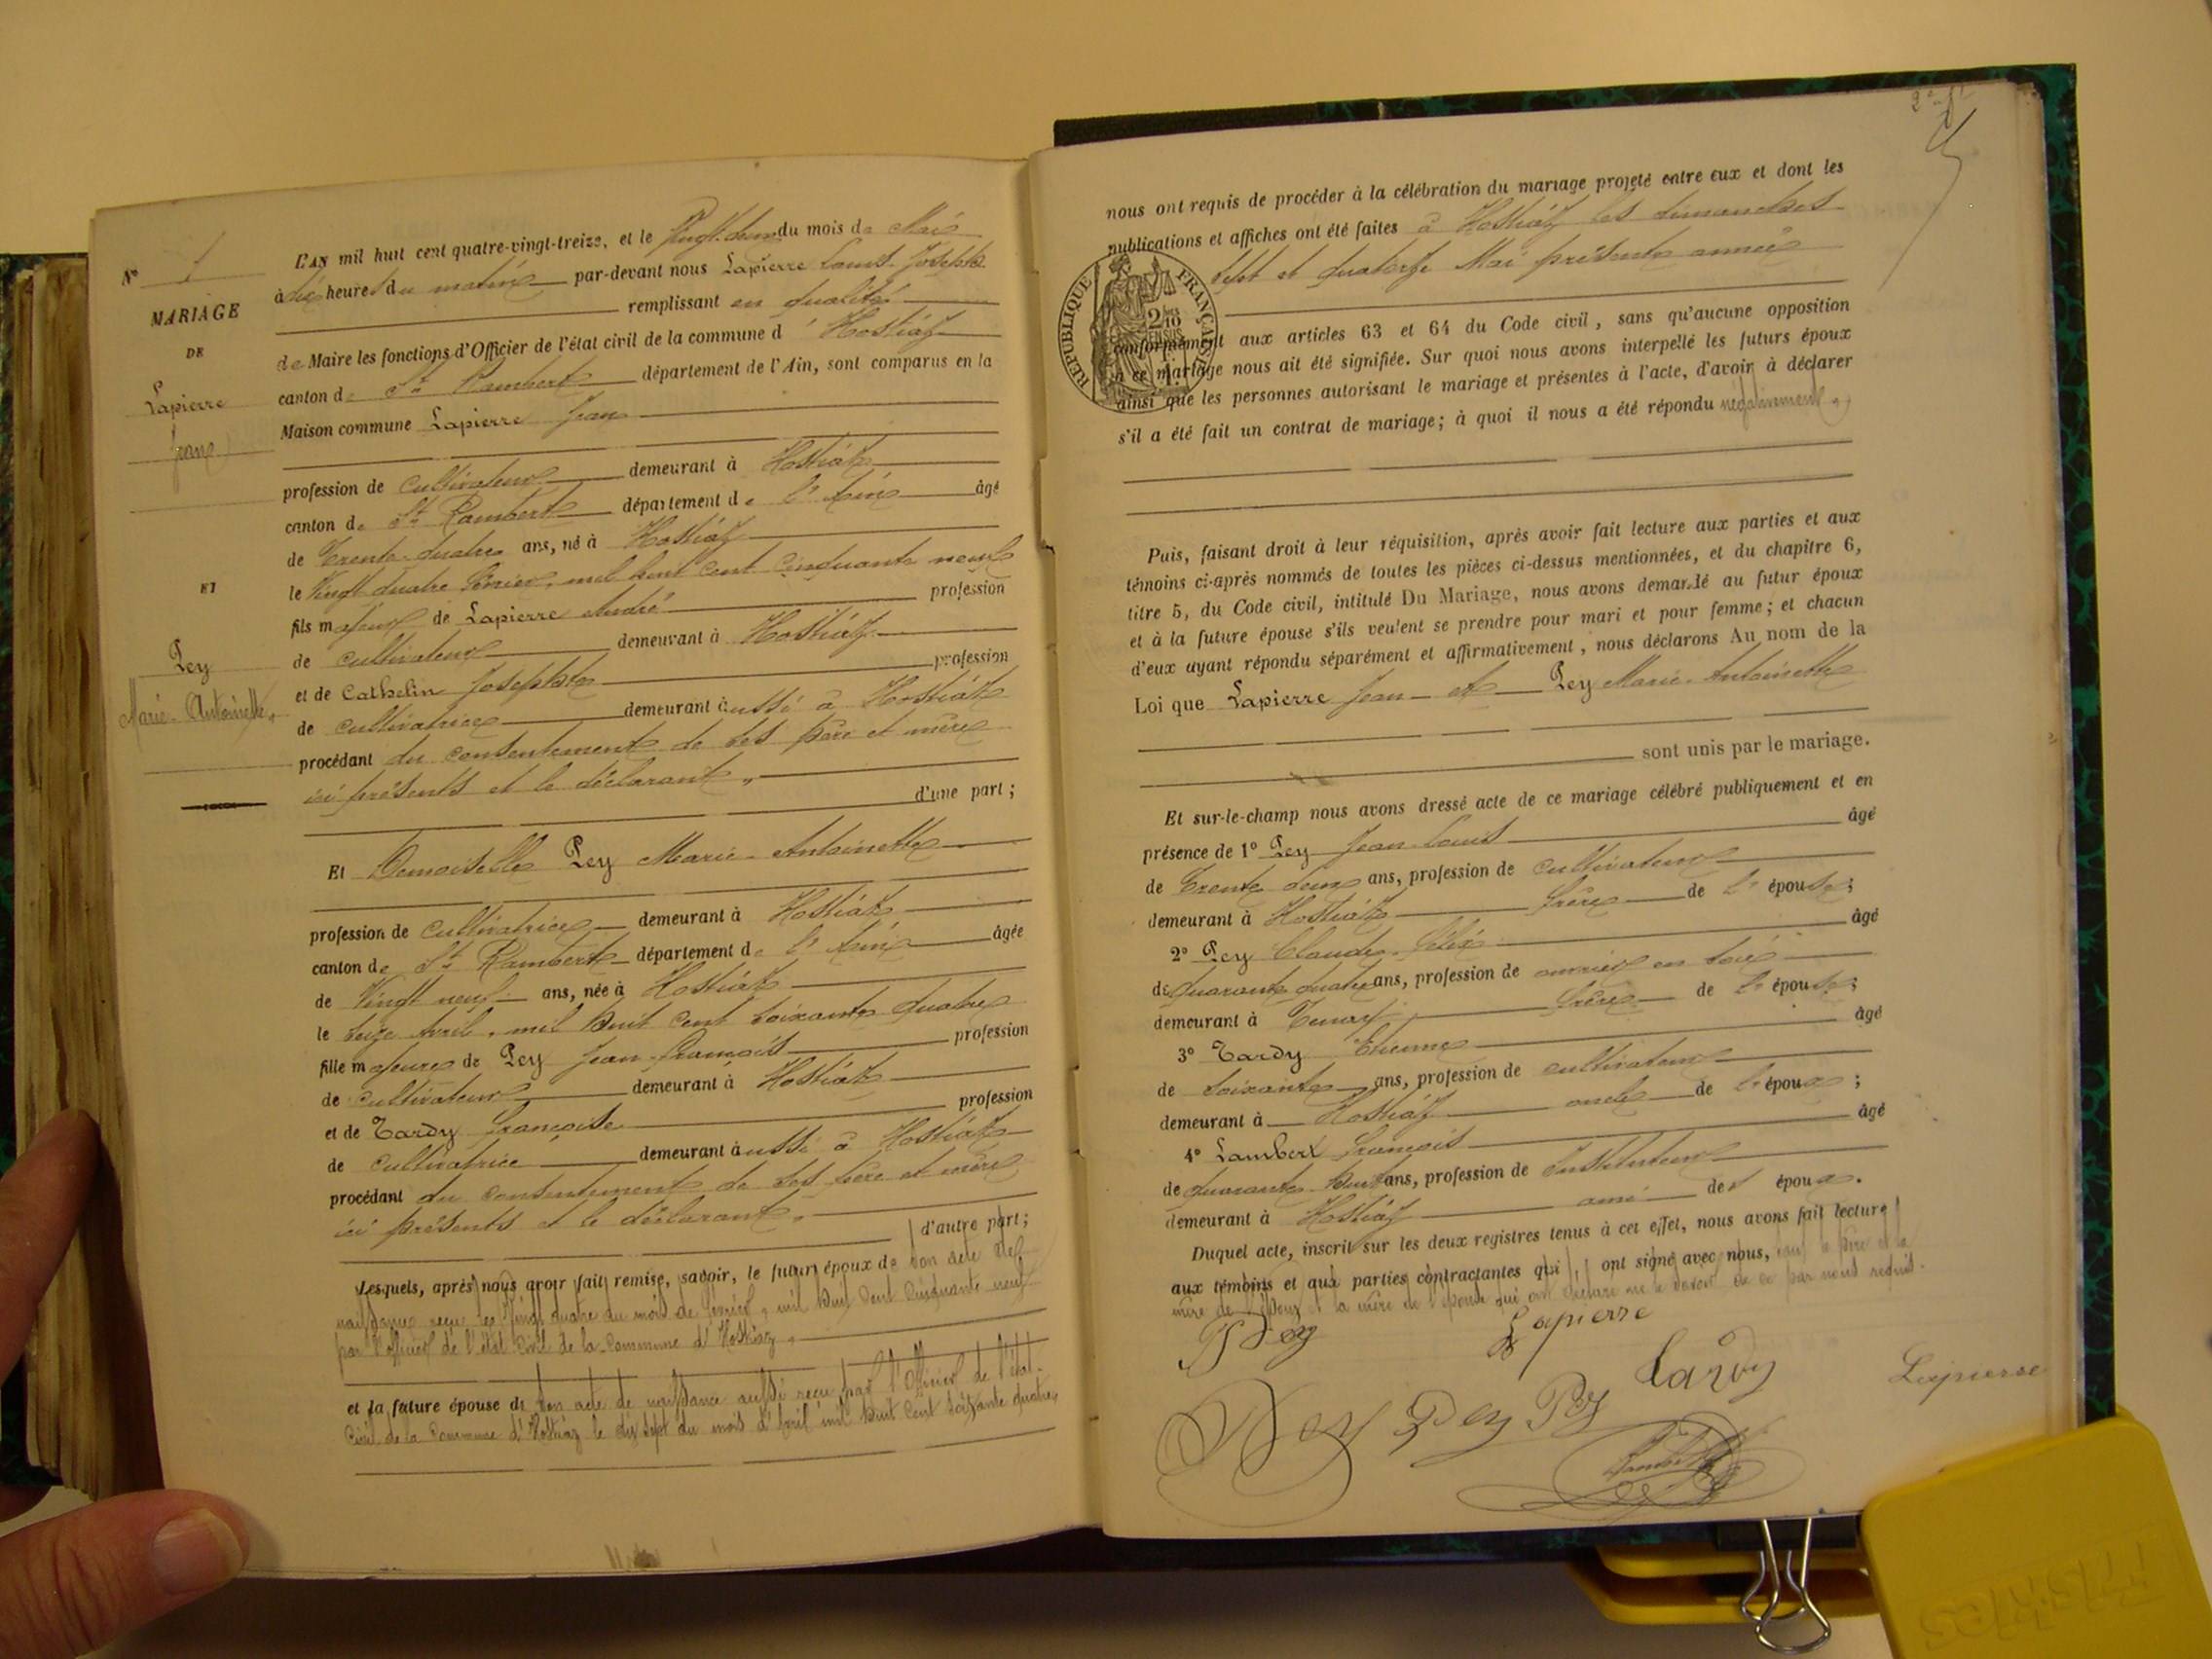 N° 1
MARIAGE
DE
Lapierre
Jean
ET
Pey
Marie-Antoinette.
L'AN mil huit cent quatre-vingt-treize, et le Vingt-deux du mois de Mai
à dix heures du matin par-devant nous Lapierre Louis-Joseph
remplissant en qualité
de Maire les fonctions d'Officier de l'état civil de la commune d'Hostiaz
canton de St Rambert département de l'Ain, sont comparus en la
Maison commune Lapierre Jean
profession de cultivateur demeurant à Hostiaz
canton de St Rambert département de l'Ain âgé
de Trente-quatre ans, né à Hostiaz
le Vingt quatre février, mil huit cent cinquante neuf
fils majeur de Lapierre André profession
de cultivateur demeurant à Hostiaz
et de Cathelin Josephte profession
de cultivatrice demeurant aussi à Hostiaz
procédant du consentement de ses père et mère
ici présents et le déclarant,
d'une part ;
Et Demoiselle Pey Marie-Antoinette
profession de cultivatrice demeurant à Hostiaz
canton de St Rambert département de l'Ain âgée
de Vingt neuf ans, née à Hostiaz
le seize Avril, mil huit cent soixante quatre
fille majeure de Pey Jean-François profession
de cultivateur demeurant à Hostiaz
et de Tardy Françoise profession
de cultivatrice demeurant aussi à Hostiaz
procédant du consentement de ses père et mère
ici présents et le déclarant,
d'autre part ;
Lesquels, après nous avoir fait remise, savoir, le futur époux de son acte de
naissance reçu le Vingt quatre du mois de février, mil huit cent cinquante neuf
par l'officier de l'état civil de la commune d'Hostiaz,
et la future épouse de son acte de naissance aussi reçu par l'Officier de l'état-
civil de la commune d'Hostiaz le dix sept du mois d'Avril mil huit cent soixante quatre,
nous ont requis de procéder à la célébration du mariage projeté entre eux et dont les
publications et affiches ont été faites à Hostiaz les dimanches
sept et quatorze Mai présente année
RÉPUBLIQUE FRANÇAISE
2/10
conformément aux articles 63 et 64 du Code civil, sans qu'aucune opposition
à ce mariage nous ait été signifiée. Sur quoi nous avons interpellé les futurs époux
ainsi que les personnes autorisant le mariage et présentes à l'acte, d'avoir à déclarer
s'il a été fait un contrat de mariage ; à quoi il nous a été répondu négativement,
Puis, faisant droit à leur réquisition, après avoir fait lecture aux parties et aux
témoins ci-après nommés de toutes les pièces ci-dessus mentionnées, et du chapitre 6,
titre 5, du Code civil, intitulé Du Mariage, nous avons demandé au futur époux
et à la future épouse s'ils veulent se prendre pour mari et pour femme ; et chacun
d'eux ayant répondu séparément et affirmativement, nous déclarons Au nom de la
Loi que Lapierre Jean et Pey Marie-Antoinette
sont unis par le mariage.
Et sur-le-champ nous avons dressé acte de ce mariage célébré publiquement et en
présence de 1° Pey Jean-Louis âgé
de Trente deux ans, profession de cultivateur
demeurant à Hostiaz frère de l'épouse ;
2° Pey Claude-Félix âgé
de quarante quatre ans, profession de ouvrier en soie
demeurant à Tenay frère de l'épouse ;
3° Tardy Etienne âgé
de soixante ans, profession de cultivateur
demeurant à Hostiaz oncle de l'époux ;
4° Lambert François âgé
de quarante-huit ans, profession de Instituteur
demeurant à Hostiaz ami des époux.
Duquel acte, inscrit sur les deux registres tenus à cet effet, nous avons fait lecture
aux témoins et aux parties contractantes qui ont signé avec nous, sauf le père et la
mère de l'époux et la mère de l'épouse qui ont déclaré ne le savoir de ce par nous requis.
Pey Lapierre
Pey Pey Pey Tardy Lapierre
Lambert